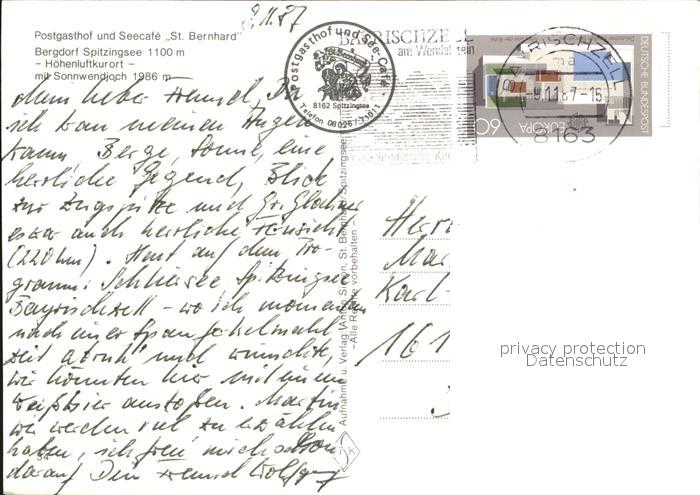 9.11.87
Postgasthof und Seecafé „St. Bernhard"
Bergdorf Spitzingsee 1100 m
- Höhenluftkurort -
mit Sonnwendjoch 1986 m
Postgasthof und See-Café
St. Bernhard
8162 Spitzingsee
Telefon 08026 / 71011
BAYRISCHZELL
am Wendelstein
BAYRISCHZELL
ma
9.11.87-15
8163
DEUTSCHE BUNDESPOST
60
EUROPA
Mein lieber Freund, Du
ich kan meinen Augen
kaum. Berge, Sonne, eine
herrliche Gegend, Blick
zur Zugspitze und Gr. Glockner
es war auch herrliche Fernsicht
(220 km). Heut auf dem Pro-
gramm: Schliersee Spitzingsee
Bayrischzell - wo ich momentan
nach einer
und wünschte,
wir könnten hier mit einem
Weißbier anstoßen. Martin
wir werden viel zu erzählen
haben, ich freu mich schon
darauf Dein Freund Wolfgang
Aufnahme u. Verlag: Anton Simon, St. Bernhard/Spitzingsee
-Alle Rechte vorbehalten-
Herr
Mar
Karl-
161
privacy protection
Datenschutz